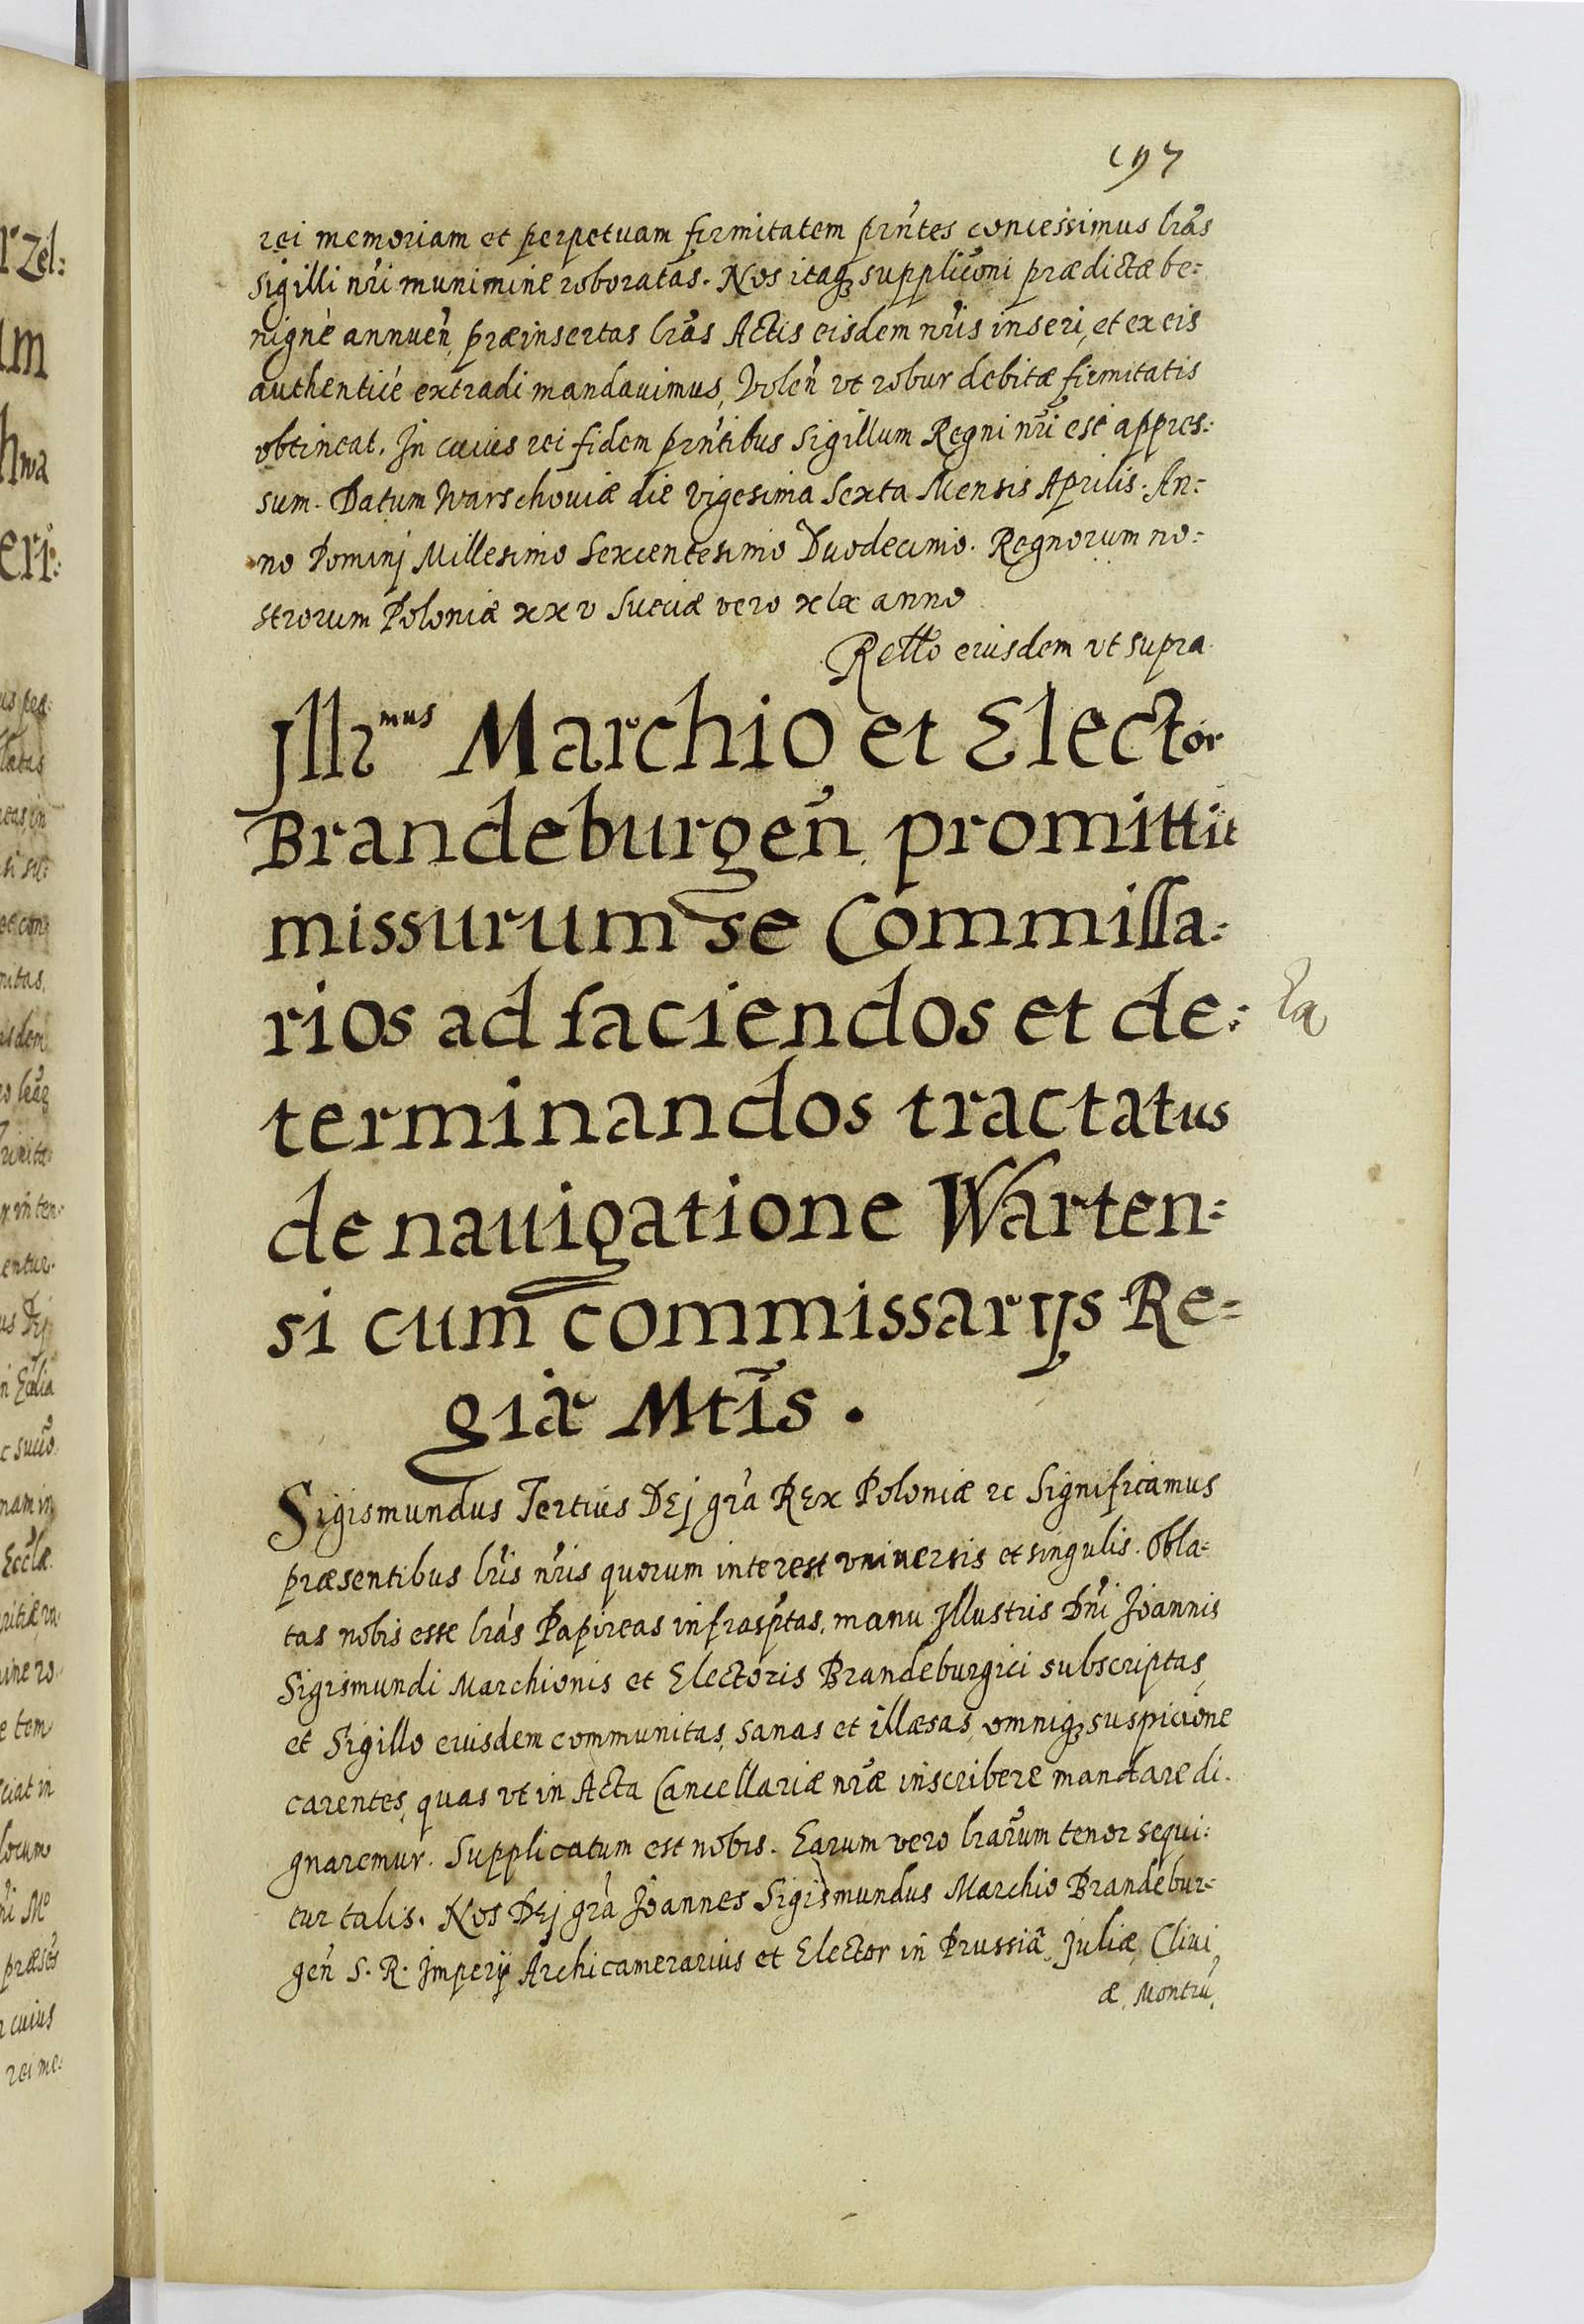 197
rei memoriam et perpetuam firmitatem prñtes concessimus lrãs
sigilli nr̃i munimine roboratas. Nos itaq₃ supplicõni prædictæ be=
nignè annueñ, præinsertas lrãs Actis eisdem nr̃is inseri, et ex eis
authenticè extradi mandauimus, Voleñ vt robur debitæ firmitatis
obtineat. In cuius rei fidem prñtibus Sigillum Regni nr̃i est appres=
sum. Datum Warschouiæ die Vigesima Sexta Mensis Aprilis. An=
no Dominj Millesimo Sexcentesimo Duodecimo. Regnorum no=
strorum Poloniæ xxv Sueciæ vero xix anno
Retto eiusdem vt supra.
Jllr^mus Marchio et Elector
Brandeburgeñ, promittit
missurum se Commissa=
rios ad faciendos et de=
terminandos tractatus
de nauigatione Warten=
si cum commissarijs Re=
giæ Mtĩs.
Sigismundus Tertius DEj grã REx Poloniæ rc Significamus
præsentibus lrĩs nr̃is quorum interest vniuersis et singulis. Obla=
tas nobis esse lrãs Papireas infrasp̃tas, manu Jllustris Dñi Joannis
Sigismundi Marchionis et Electoris Brandeburgici subscriptas,
et Sigillo eiusdem communitas, sanas et illæsas, omniq₃ suspicione
carentes, quas vt in Acta Cancellariæ nr̃æ inscribere mandare di=
gnaremur. Supplicatum est nobis. Earum vero lrarũm tenor sequi=
tur talis. Nos DEj grã Joannes Sigismundus Marchio Brandebur=
geñ S. R. Jmperij Archicamerarius et Elector in Prussiã, Juliæ, Cliui
æ, Montiũ,